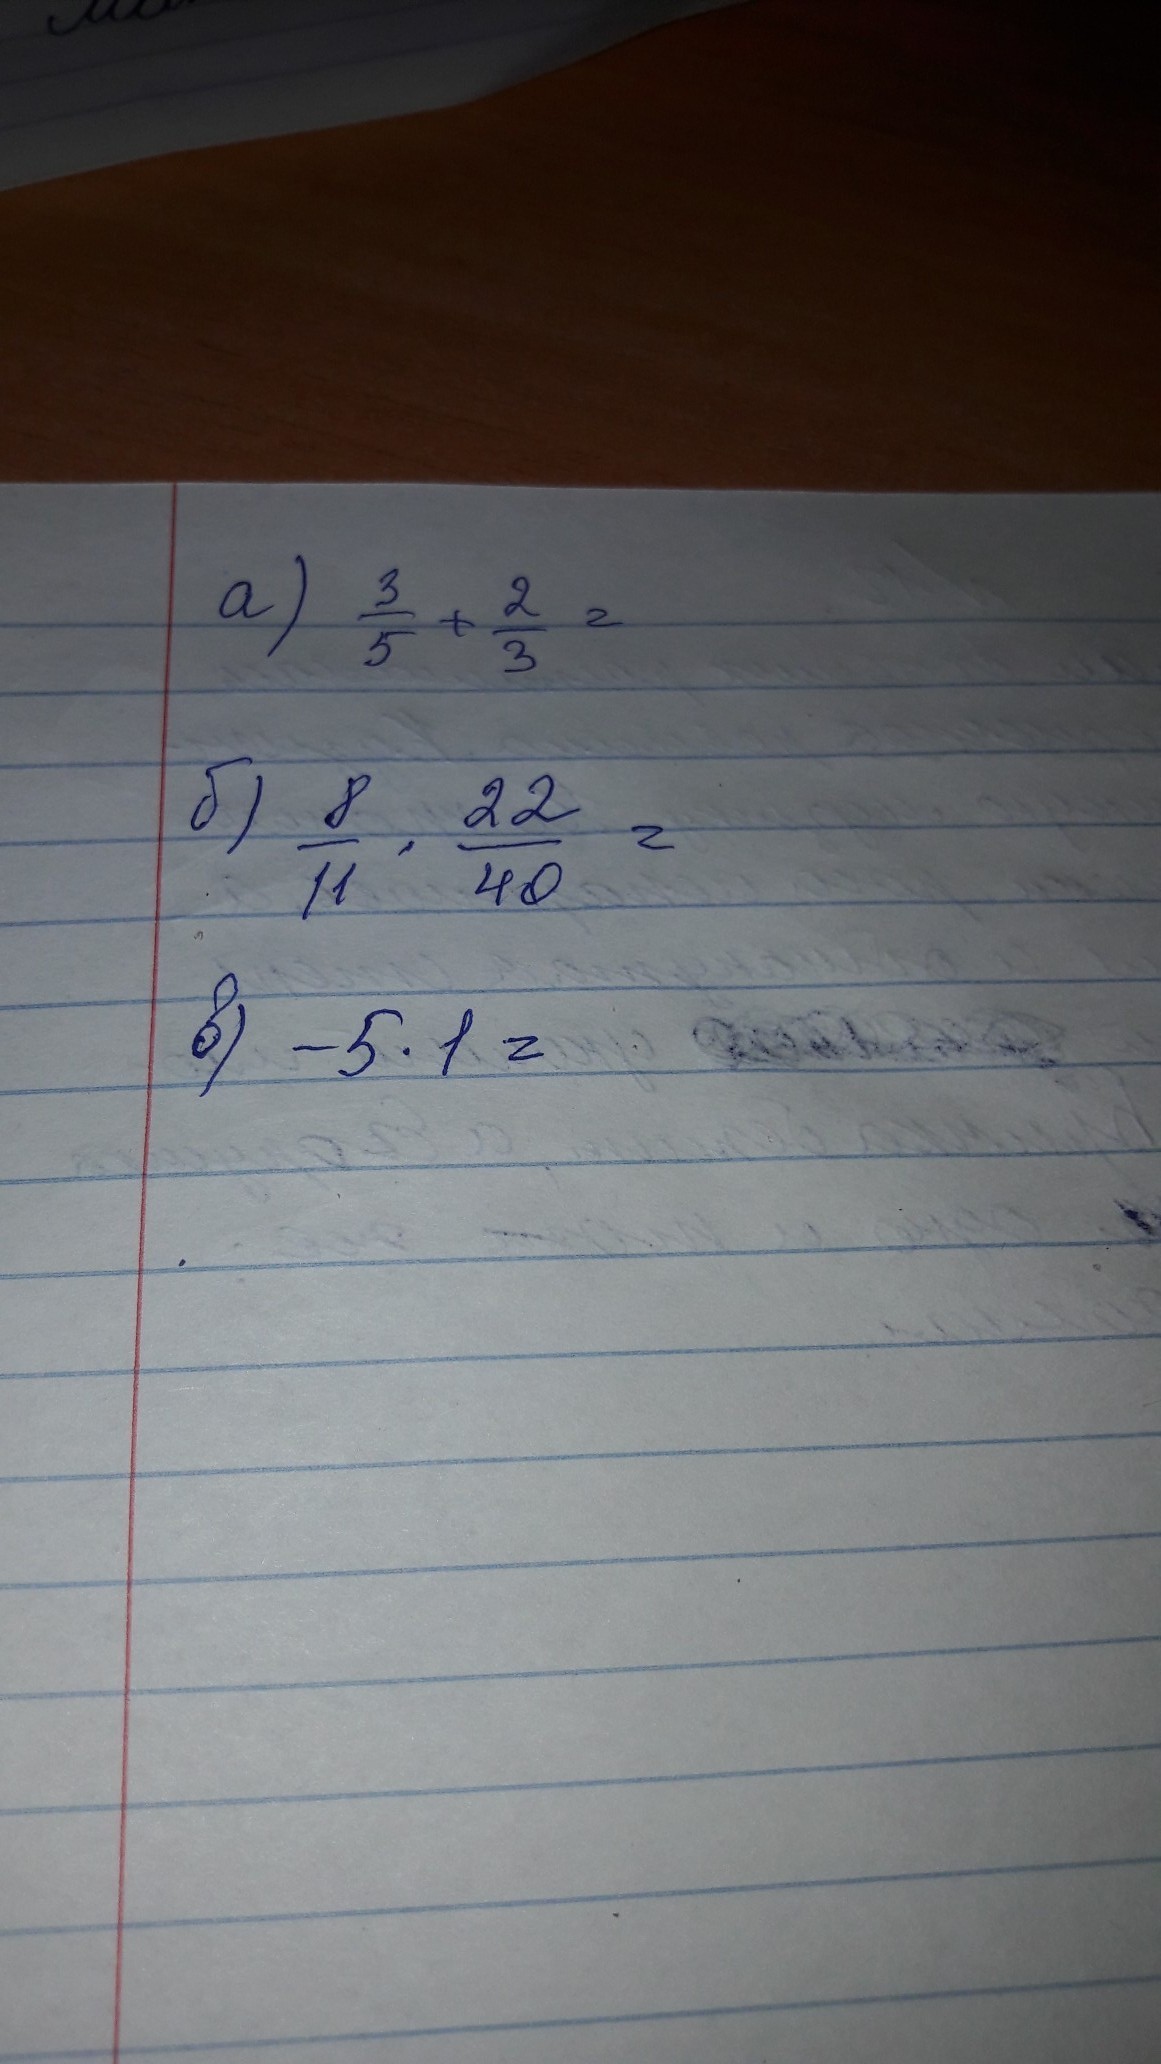 а) 3/5 + 2/3 =
б) 8/11 · 22/40 =
в) -5 · 1 =